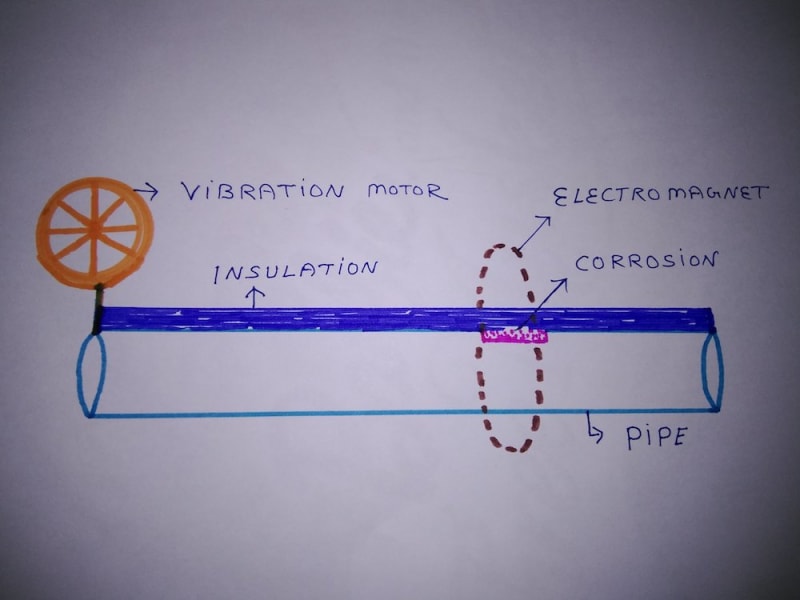 ViBRATiON MOTOR
ELECTRO MAGNET
INSULATiON
CORROSiON
PiPE